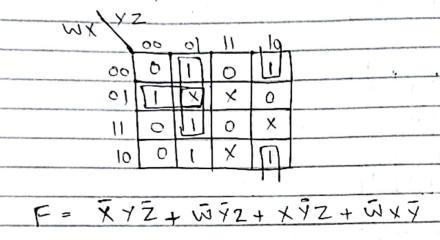 WX YZ
00 01 11 10
00 0 1 0 1
01 1 X X 0
11 0 1 0 X
10 0 1 X 1
F = X̄ Y Z̄ + W̄ Ȳ Z + X Ȳ Z + W̄ X Ȳ